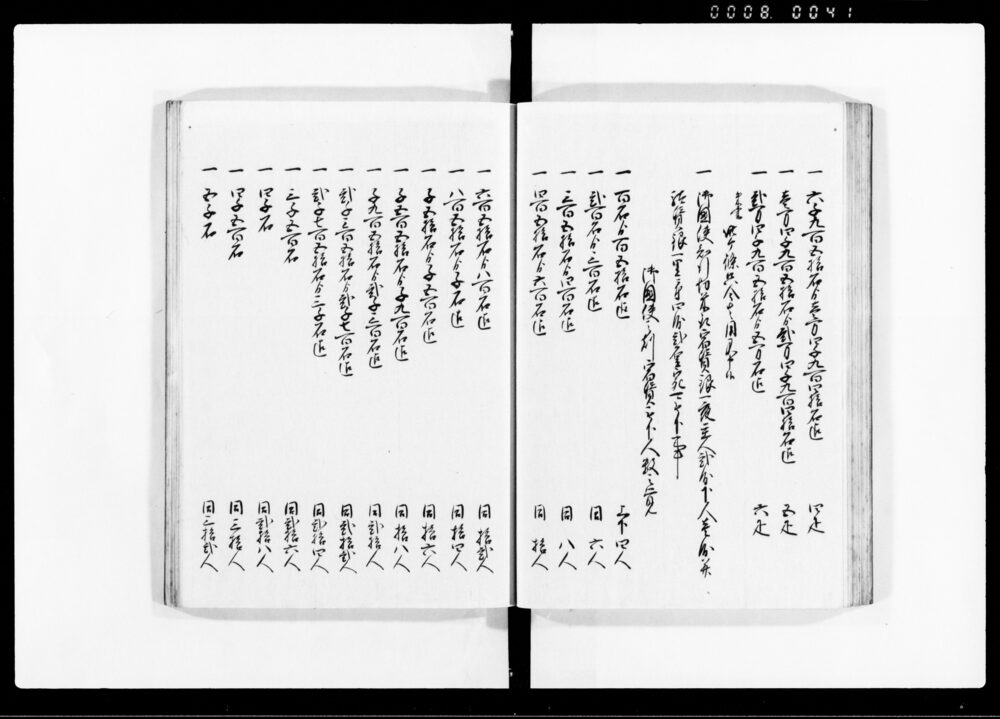 0008 0041
一 六千九百五拾石ゟ壱万四千九百四拾石迄 四疋
一 壱万四千九百五拾石ゟ弐万四千九百四拾石迄 五疋
一 弐万四千九百五拾石ゟ五万石迄 六疋
一 御国使知行切米取宿賃銀一夜主人弐分下人壱分并
御国使之刻宿賃被下人数之覚
一 百石ゟ百五拾石迄 上下四人
一 弐百石ゟ三百石迄 同 六人
一 三百五拾石ゟ四百石迄 同 八人
一 四百五拾石ゟ六百石迄 同 拾人
一 六百五拾石ゟ八百石迄 同 拾弐人
一 八百五拾石ゟ千石迄 同 拾四人
一 千五拾石ゟ千五百石迄 同 拾六人
一 千五百五拾石ゟ千九百石迄 同 拾八人
一 千九百五拾石ゟ弐千三百石迄 同 弐拾人
一 弐千三百五拾石ゟ弐千七百石迄 同 弐拾弐人
一 弐千七百五拾石ゟ三千石迄 同 弐拾四人
一 三千五百石 同 弐拾六人
一 四千石 同 弐拾八人
一 四千五百石 同 三拾人
一 五千石 同 三拾弐人